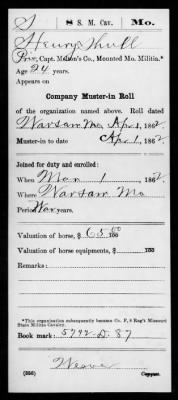 S 8 S. M. Cav. Mo.
Henry Shull
Priv, Capt. Melson's Co., Mounted Mo. Militia.*
Age 24 years.
Appears on
Company Muster-in Roll
of the organization named above. Roll dated
Warsaw Mo, Apr 1, 1862.
Muster-in to date Apr 1, 1862.
Joined for duty and enrolled:
When Mar 1, 1862.
Where Warsaw Mo
Period War years.
Valuation of horse, $ 65 00/100
Valuation of horse equipments, $ /100
Remarks:
*This organization subsequently became Co. F, 8 Reg't Missouri
State Militia Cavalry.
Book mark: 5792-D-87
(356) Copyist.